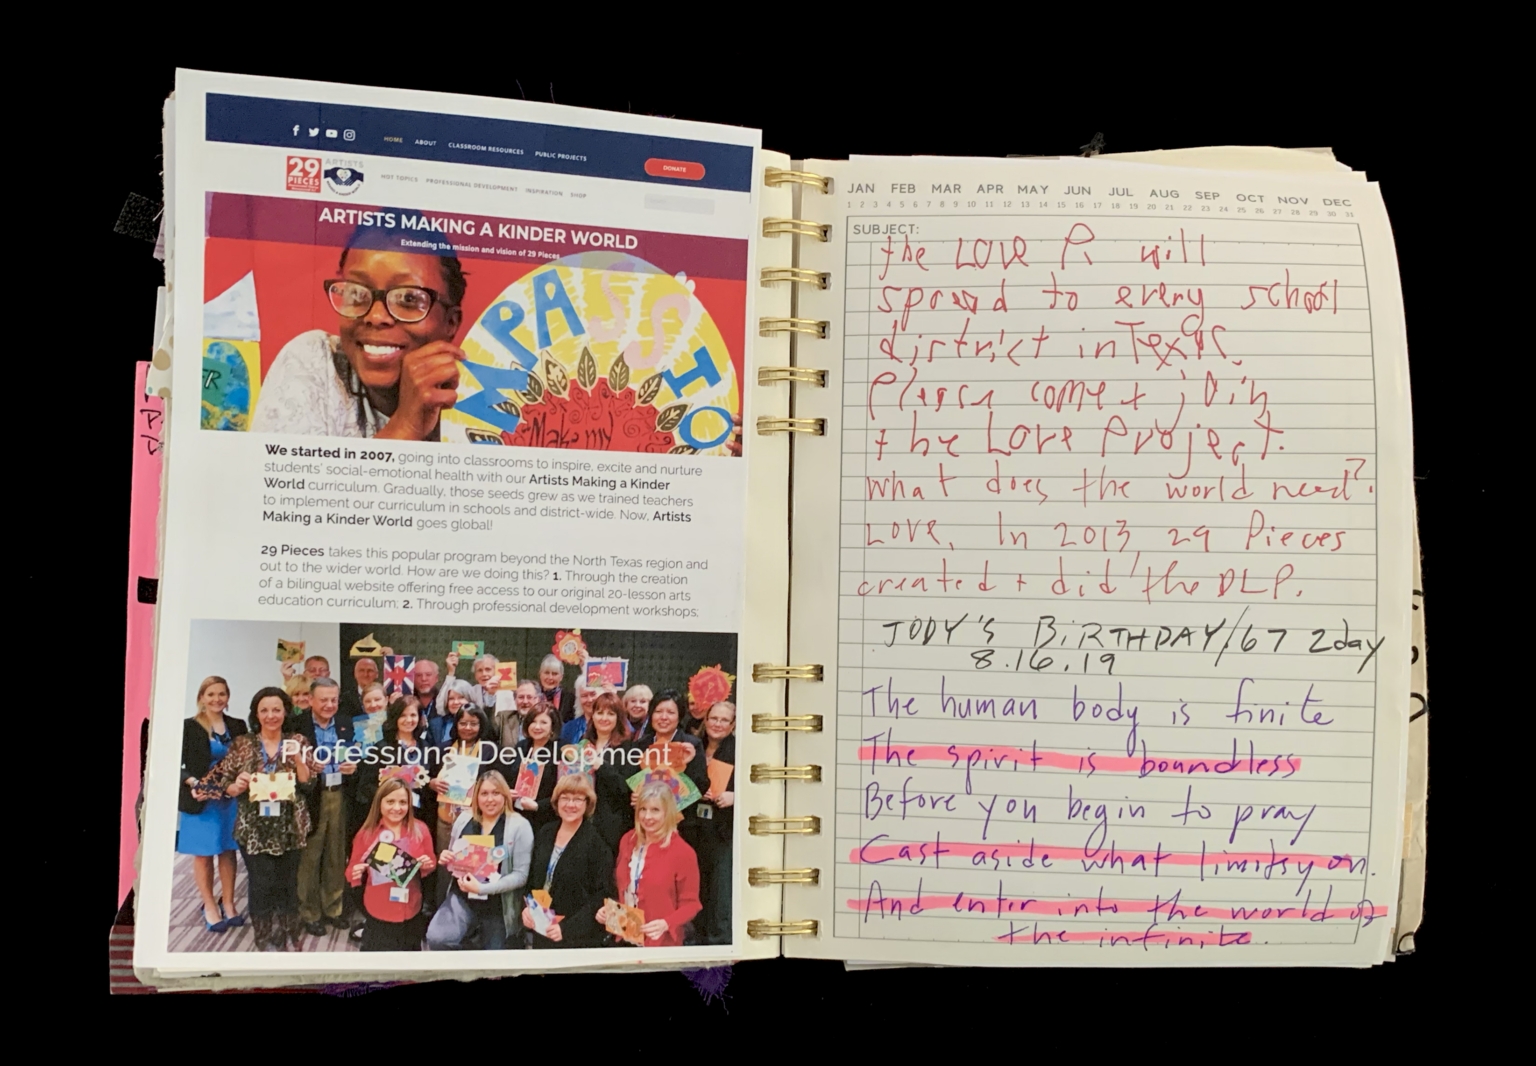 HOME ABOUT CLASSROOM RESOURCES PUBLIC PROJECTS DONATE
29 PIECES
ARTISTS
HOT TOPICS PROFESSIONAL DEVELOPMENT INSPIRATION SHOP
ARTISTS MAKING A KINDER WORLD
Extending the mission and vision of 29 Pieces
MPASSIO
Make my
We started in 2007, going into classrooms to inspire, excite and nurture
students' social-emotional health with our Artists Making a Kinder
World curriculum. Gradually, those seeds grew as we trained teachers
to implement our curriculum in schools and district-wide. Now, Artists
Making a Kinder World goes global!
29 Pieces takes this popular program beyond the North Texas region and
out to the wider world. How are we doing this? 1. Through the creation
of a bilingual website offering free access to our original 20-lesson arts
education curriculum; 2. Through professional development workshops;
Professional Development
JAN FEB MAR APR MAY JUN JUL AUG SEP OCT NOV DEC
1 2 3 4 5 6 7 8 9 10 11 12 13 14 15 16 17 18 19 20 21 22 23 24 25 26 27 28 29 30 31
SUBJECT:
the LOVE P will
spread to every school
district in Texas.
Please come + join
the Love Project.
What does the world need?
LOVE. In 2013, 29 Pieces
created + did the DLP.
JODY'S BiRTHDAY/67 2day
8.16.19
The human body is finite
The spirit is boundless
Before you begin to pray
Cast aside what limits you.
And enter into the world of
the infinite.